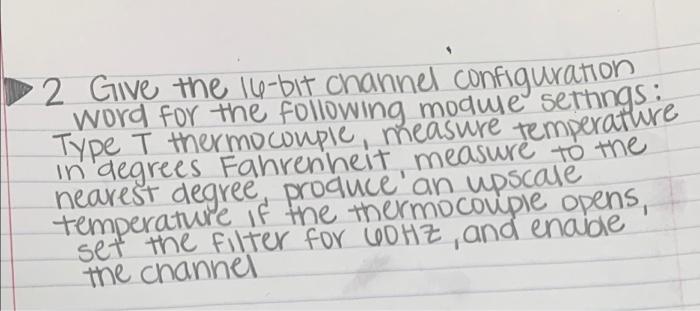 2 Give the 16-bit channel configuration
word for the following module settings:
Type T thermocouple, measure temperature
in degrees Fahrenheit, measure to the
nearest degree, produce an upscale
temperature if the thermocouple opens,
set the filter for 60HZ, and enable
the channel